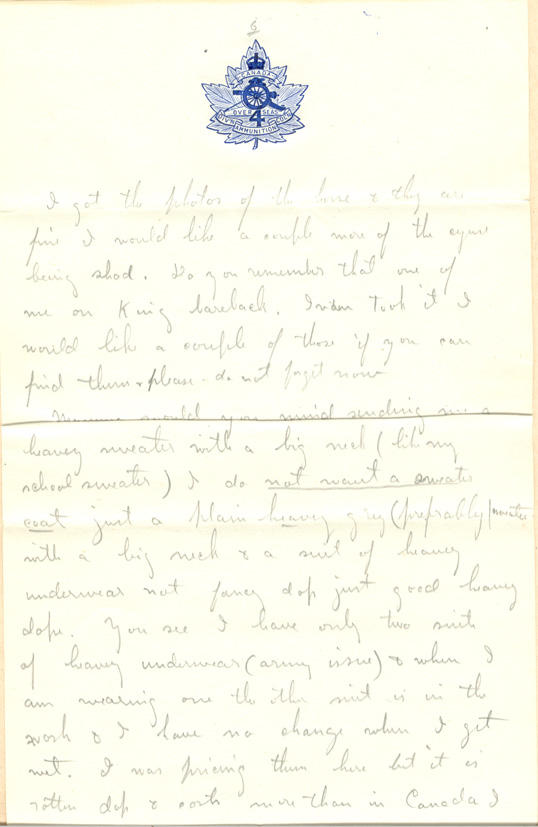 6
CANADA
OVER SEAS
4
DIV'N AMMUNITION COL'N
I got the photos of the horse & they are
fine I would like a couple more of the
being shod. Do you remember that one of
me on King bareback. took it I
would like a couple of those if you can
find them & please do not forget now
would you mind sending me a
heavy sweater with a big neck (like my
school sweater) I do not want a sweater
coat just a plain heavy grey (prefrably) sweater
with a big neck & a suit of heavy
underwear not fancy dop just good heavy
dope. You see I have only two suits
of heavy underwear (army issue) & when I
am wearing one the other suit is in the
wash & I have no change when I get
wet. I was pricing them here but it is
rotten dop & costs more than in Canada I